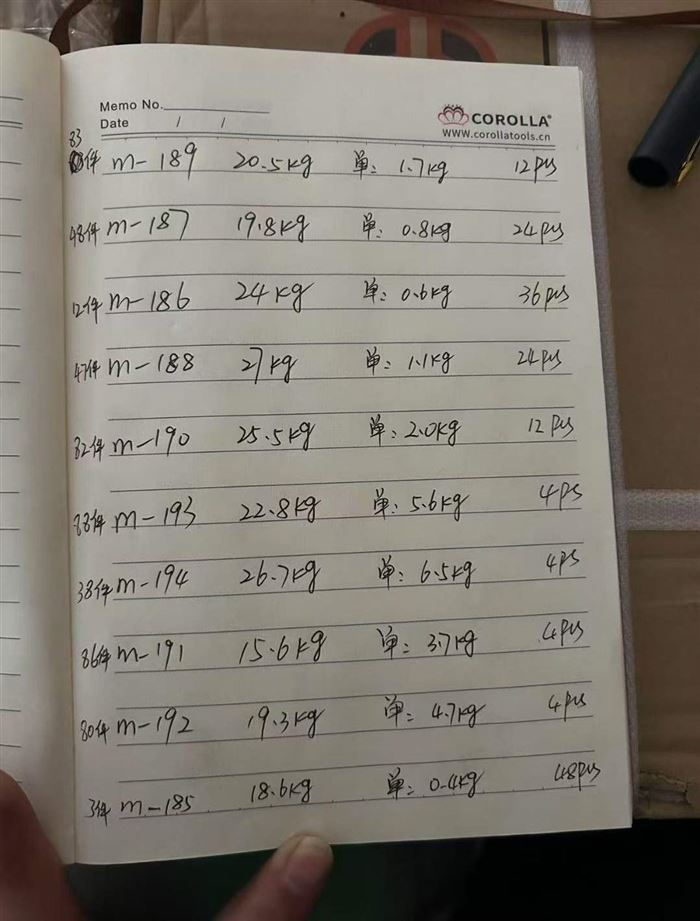 Memo No.
COROLLA®
Date / /
www.corollatools.cn
83
件 m-189 20.5kg 单: 1.7kg 12pcs
48件 m-187 19.8kg 单: 0.8kg 24pcs
12件 m-186 24kg 单: 0.6kg 36pcs
47件 m-188 27kg 单: 1.1kg 24pcs
82件 m-190 25.5kg 单: 2.0kg 12pcs
88件 m-193 22.8kg 单: 5.6kg 4pcs
38件 m-194 26.7kg 单: 6.5kg 4pcs
86件 m-191 15.6kg 单: 3.7kg 4pcs
80件 m-192 19.3kg 单: 4.7kg 4pcs
3件 m-185 18.6kg 单: 0.4kg 48pcs